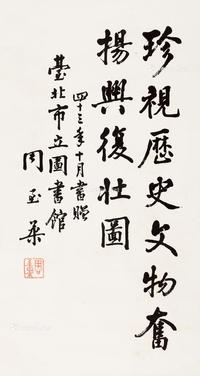 珍視歷史文物奮
揚興復壯圖
四十三年十月書贈
臺北市立圖書館
周至柔